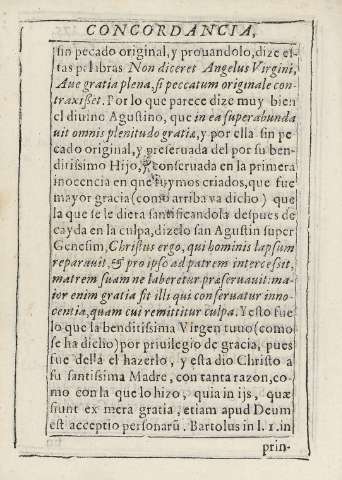 CONCORDANCIA,
sin pecado original, y prouandolo, dize es-
tas palabras Non diceret Angelus Virgini,
Aue gratia plena, si peccatum originale con-
traxisset. Por lo que parece dize muy bien
el diuino Agustino, que in ea superabunda
uit omnis plenitudo gratiæ, y por ella sin pe
cado original, y preseruada del por su ben-
ditissimo Hijo, y conseruada en la primera
inocencia en que fuymos criados, que fue
mayor gracia (como arriba va dicho) que
la que se le diera santificandola despues de
cayda en la culpa, dizelo san Agustin super
Genesim, Christus ergo, qui hominis lapsum
reparauit, & pro ipso ad patrem intercessit,
matrem suam ne laberetur præseruauit: ma-
ior enim gratia fit illi qui conseruatur inno-
centia, quam cui remittitur culpa. Y esto fue
lo que la benditissima Virgen tuuo (como
se ha dicho) por priuilegio de gracia, pues
fue della el hazerlo, y esta dio Christo a
su santissima Madre, con tanta razon, co-
mo con la que lo hizo, quia in ijs, quæ
siunt ex mera gratia, etiam apud Deum
est acceptio personarū. Bartolus in l. 1. in
prin-